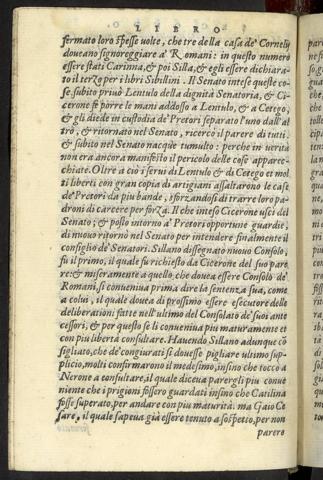 LIBRO
fermato loro spesse volte, che tre della casa de' Cornelij
doueano signoreggiare a' Romani: in questo numero
essere stati Carinna, & poi Silla, & egli essere dichiara-
to il terzo per i libri Sibillini. Il Senato intese queste co-
se. subito priuò Lentulo della dignità Senatoria, & Ci-
cerone fe porre le mani addosso a Lentulo, & a Cetego,
& gli diede in custodia de' Pretori separato l'uno dall'al
trò, & ritornato nel Senato, ricercò il parere di tutti.
& subito nel Senato nacque tumulto: perche in uerità
non era ancora manifesto il pericolo delle cose apparec-
chiate. Oltre a ciò i serui di Lentulo & di Cetego et mol
ti liberti con gran copia di artigiani assaltarono le case
de' Pretori da piu bande, sforzandosi di trarre loro pa-
droni di carcere per forza. Il che inteso Cicerone usci del
Senato; & posto intorno a' Pretori opportune guardie,
di nuouo ritornò nel Senato per intendere finalmente il
consiglio de' Senatori. Sillano dissegnato nuouo Consolo
fu il primo, il quale fu richiesto da Cicerone del suo pare
re: & miseramente a quello, che douea essere Consolo de'
Romani, si conueniua prima dire la sentenza sua, come
a colui, il quale douea di prossimo essere esecutore delle
deliberationi fatte nell'ultimo del Consolato de' suoi ante
cessori, & per questo se li conueniua piu maturamente et
con piu libertà consultare. Hauendo Sillano adunque cō
sigliato, che de' congiurati si douesse pigliare ultimo sup-
plicio, molti confirmarono il medesimo, insino che toccò a
Nerone a consultare, il quale diceua parergli piu conue
niente che i prigioni fossero guardati insino che Catilina
fosse superato, per andare con piu maturità. ma Gaio Ce
sare, il quale sapeua già essere tenuto a sospetto, per non
parere